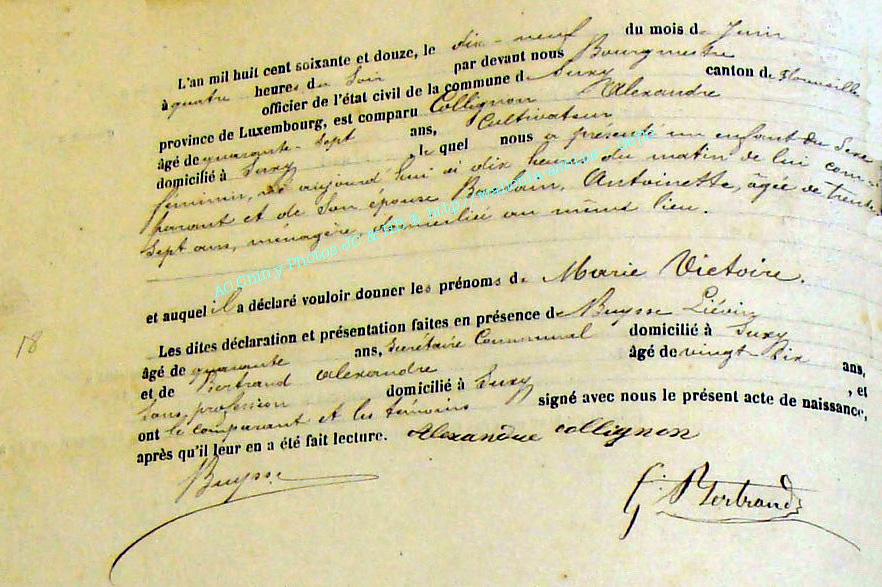 L'an mil huit cent soixante et douze, le dix-neuf du mois de Juin
à quatre heures du Soir par devant nous Bourgmestre
officier de l'état civil de la commune de Suxy canton de Florenville
province de Luxembourg, est comparu Collignon Alexandre
âgé de quarante-sept ans, Cultivateur
domicilié à Suxy, le quel nous a présenté un enfant du Sexe
féminin, né aujourd'hui à dix heures du matin de lui com-
parant et de Son épouse Antoinette, âgée de trente
Sept ans, ménagère, domiciliée au même lieu.
et auquel il a déclaré vouloir donner les prénoms de Marie Victoire.
Les dites déclaration et présentation faites en présence de Buysse Liévin
âgé de quarante ans, Secrétaire Communal domicilié à Suxy
et de Bertrand Alexandre âgé de vingt-six ans,
Sans profession domicilié à Suxy, et
ont le comparant et les témoins signé avec nous le présent acte de naissance,
après qu'il leur en a été fait lecture. Alexandre Collignon
Buysse
Bertrand
18